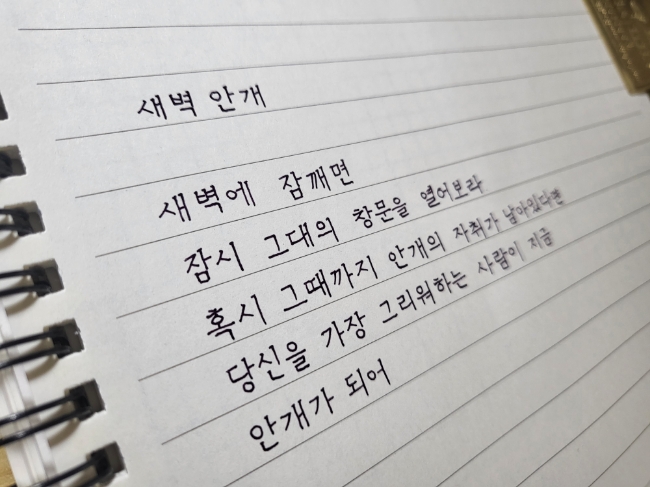 새벽 안개
새벽에 잠깨면
잠시 그대의 창문을 열어보라
혹시 그때까지 안개의 자취가 남아있다면
당신을 가장 그리워하는 사람이 지금
안개가 되어